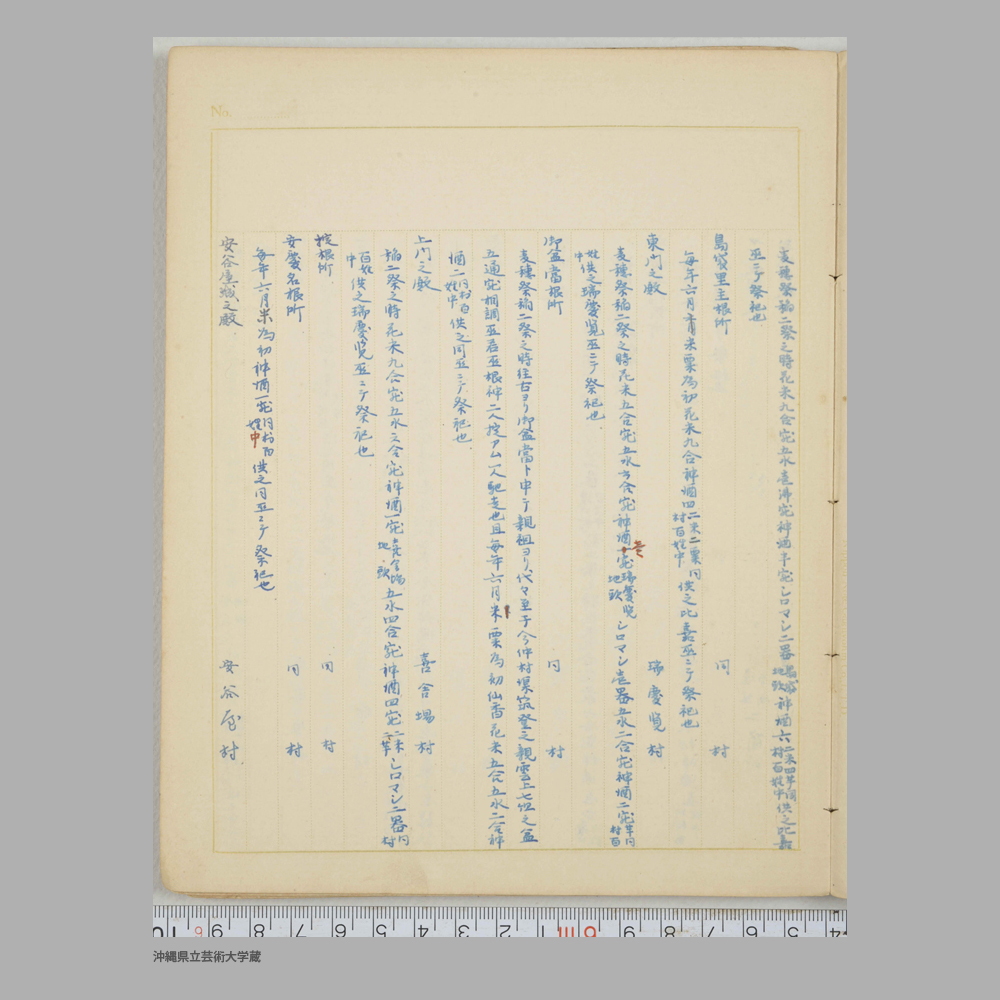 No.
麦穂祭稲二祭之時花米九合宛五水壱沸宛神酒半宛シロマシ二器島袋地頭神酒六二米四芋同村百姓中供之此嘉
巫ニテ祭祀也
島袋里主根所 同 村
毎年六月米粟為初花米九合神酒四二米二粟同村百姓中供之此嘉巫ニテ祭祀也
東門之殿 瑞慶覧村
麦穂祭稲二祭之時花米五合宛五水六合宛神酒壱宛瑞慶覧地頭シロマシ壱器五水二合宛神酒二宛芋同村百
姓中供之瑞慶覧巫ニテ祭祀也
御盆當根所 同 村
麦穂祭稲二祭之時往古ヨリ御盆當ト申テ親祖ヨリ代々至于今仲村渠筑登之親雲上七組之盆
五通宛相調巫若巫根神二人掟アム一人馳走也且毎年六月米粟為初仙香花米五合五水二合神
酒二同村百姓中供之同巫ニテ祭祀也
上門之殿 喜舎場村
稲二祭之時花米九合宛五水六合宛神酒一宛喜舎場地頭五水四合宛神酒四宛二米二芋シロマシ二器同村
百姓中供之瑞慶覧巫ニテ祭祀也
掟根所 同 村
安慶名根所 同 村
毎年六月米為初神酒一宛同村百姓中供之同巫ニテ祭祀也
安谷屋城之殿 安谷屋村
沖縄県立芸術大学蔵